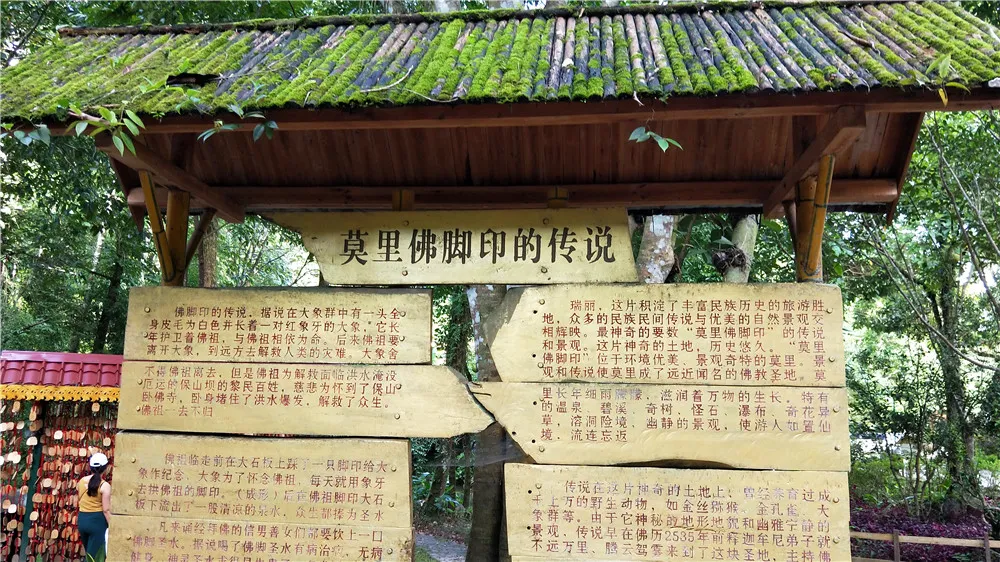 莫里佛脚印的传说
佛脚印的传说，据说在大象群中有一头全
身皮毛为白色并长着一对红象牙的大象，它长
年护卫着佛祖，与佛祖相依为命。后来佛祖要
离开大象，到远方去解救人类的灾难。大象舍
不得佛祖离去，但是佛祖为解救面临洪水淹没
厄运的保山坝的黎民百姓，慈悲为怀到了保山
卧佛寺，卧身堵住了洪水爆发，解救了众生。
佛祖一去不归
佛祖临走前在大石板上踩了一只脚印给大
象作纪念，大象为了怀念佛祖，每天就用象牙
去拱佛祖的脚印，（成形）后在佛祖脚印大石
板下流出了一股清凉的泉水，众生都捧为圣水
凡来诵经年佛的信男善女们都要饮上一口
佛脚圣水。据说喝了佛脚圣水有病治病，无病
瑞丽，这片积淀了丰富民族历史的旅游胜
地，众多的民族民间传说与优美的自然景观交
相辉映。最神奇的要数“莫里佛脚印”的传说
和景观。这片神奇的土地，历史悠久，“莫里
佛脚印”位于环境优美、景观奇特的莫里。景
观和传说使莫里成了远近闻名的佛教圣地。莫
里长年细雨朦朦，滋润着万物的生长。特有
的温泉、碧溪、奇树、怪石、瀑布、奇花异
草，溶洞险境、幽静的景观，使游人如置仙
境，流连忘返
传说在这片神奇的土地上：曾经养育过成
千上万的野生动物，如金丝猕猴、金孔雀、大
象群等。由于它神秘的地形地貌和幽雅宁静的
景观，传说早在佛历2535年前释迦牟尼弟子就
不远万里、腾云驾雾来到了这块圣地，主持佛